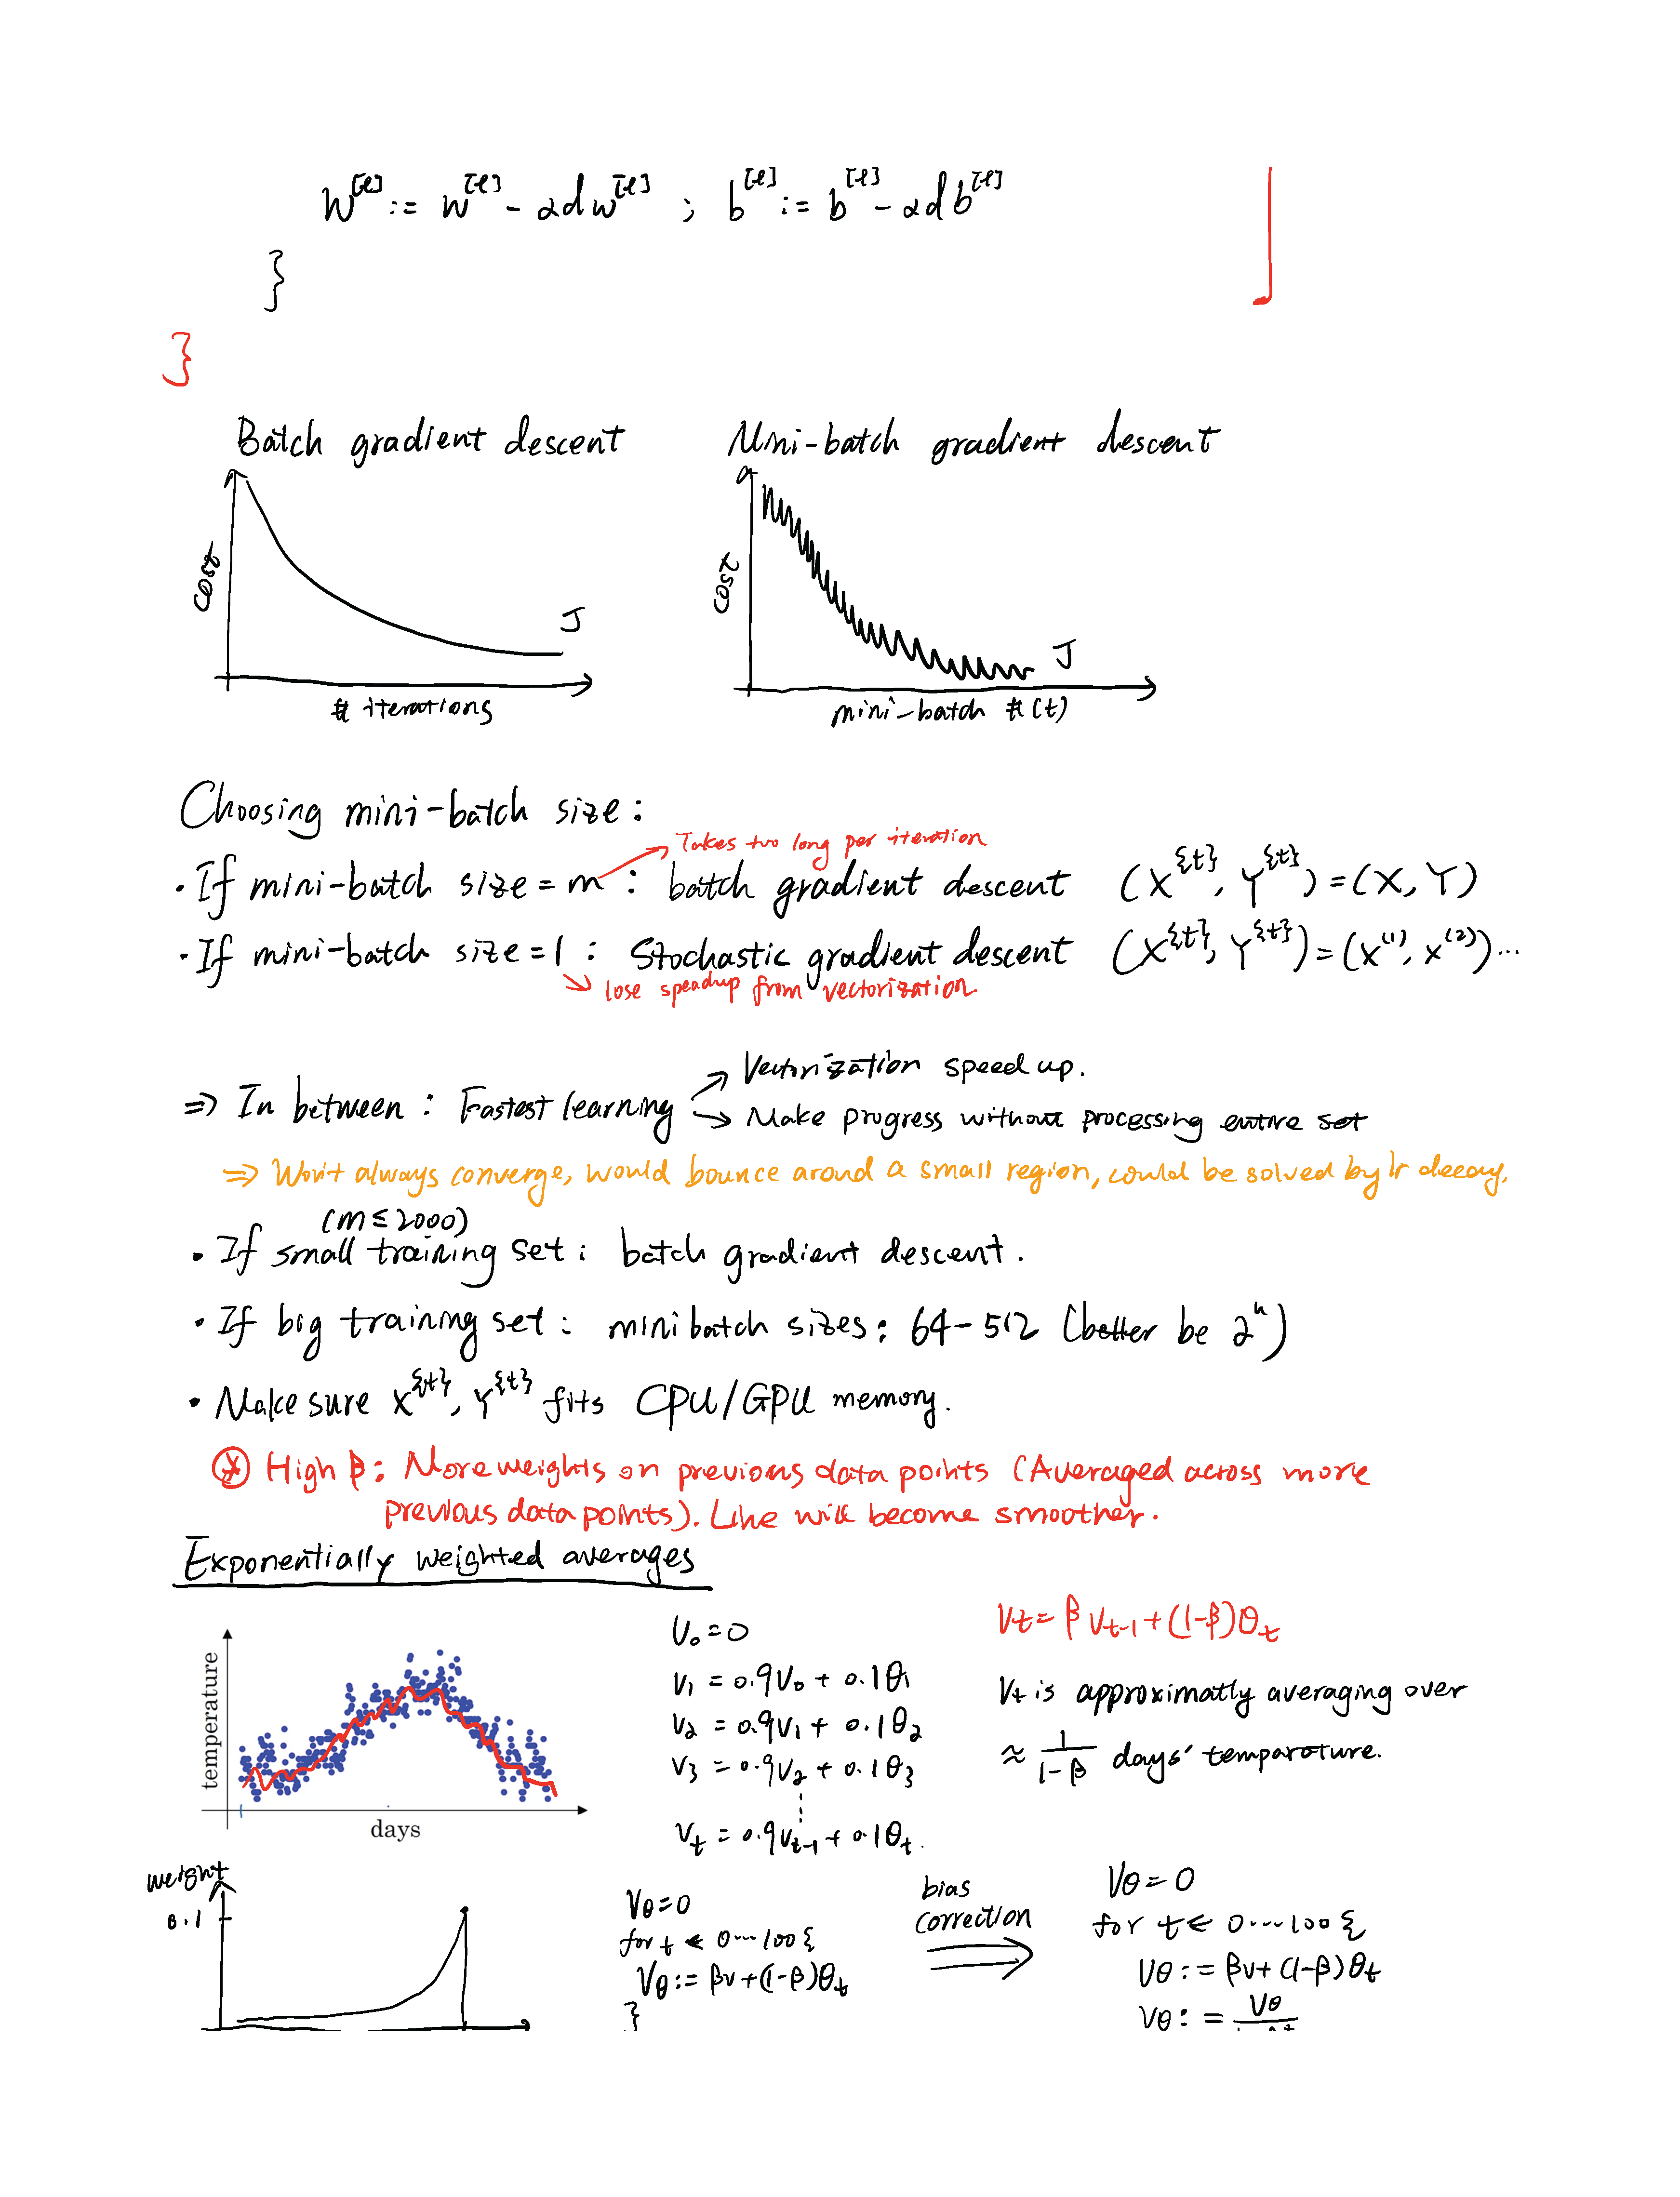 W^[l] := W^[l] - αdW^[l] ; b^[l] := b^[l] - αdb^[l]
}
}
Batch gradient descent
Mini-batch gradient descent
cost
J
# iterations
cost
J
mini-batch # (t)
Choosing mini-batch size :
Takes too long per iteration
· If mini-batch size = m : batch gradient descent (X^{t}, Y^{t}) = (X, Y)
· If mini-batch size = 1 : Stochastic gradient descent (X^{t}, Y^{t}) = (x^(1), x^(2)) ...
lose speedup from vectorization
Vectorization speed up.
⇒ In between : Fastest learning
Make progress without processing entire set
⇒ Won't always converge, would bounce around a small region, could be solved by lr decay.
(m ≤ 2000)
· If small training set : batch gradient descent.
· If big training set : minibatch sizes : 64 - 512 (better be 2^n)
· Make sure X^{t}, Y^{t} fits CPU/GPU memory.
* High β : More weights on previous data points (Averaged across more
previous data points). Line will become smoother.
Exponentially weighted averages
temperature
days
V₀ = 0
V₁ = 0.9V₀ + 0.1θ₁
V₂ = 0.9V₁ + 0.1θ₂
V₃ = 0.9V₂ + 0.1θ₃
V_t = 0.9V_{t-1} + 0.1θ_t.
V_t = βV_{t-1} + (1-β)θ_t
V_t is approximatly averaging over
≈ 1/(1-β) days' temparature.
weight
0.1
Vθ = 0
for t ← 0 ... 100 {
Vθ := βv + (1-β)θ_t
}
bias
correction
Vθ = 0
for t ← 0 ... 100 {
Vθ := βv + (1-β)θ_t
Vθ := Vθ